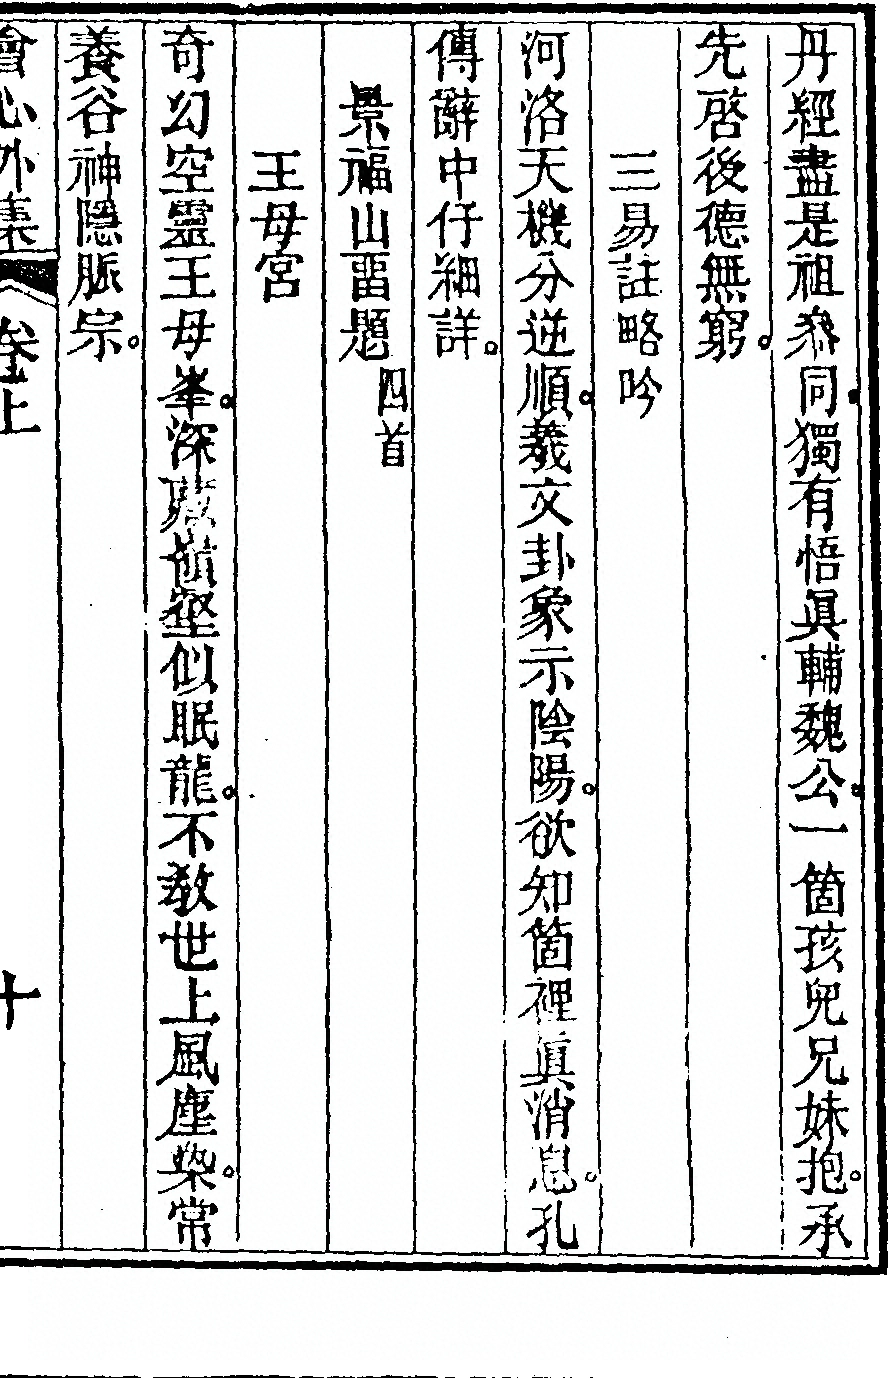 丹經盡是祖參同獨有悟眞輔魏公。一箇孩兒兄妹抱。承
先啓後德無窮。
三易註略吟
河洛天機分逆順。羲文卦象示陰陽。欲知箇裡眞消息。孔
傳辭中仔細詳。
景福山畱題四首
王母宮
奇幻空靈王母峯。深藏嶺壑似眠龍。不教世上風塵染。常
養谷神隱脈宗。
會心外集 卷上 十